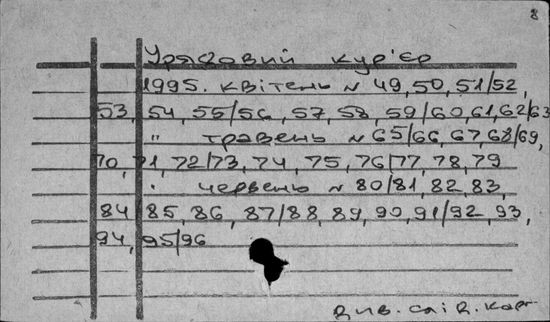 8
Урядовий кур'єр
1995. квітень N 49, 50, 51/52,
53, 54, 55/56, 57, 58, 59/60, 61, 62/63
" травень N 65/66, 67, 68/69,
70, 71, 72/73, 74, 75, 76/77, 78, 79
" червень N 80/81, 82, 83,
84, 85, 86, 87/88, 89, 90, 91/92, 93,
94, 95/96
Див. слід. карт